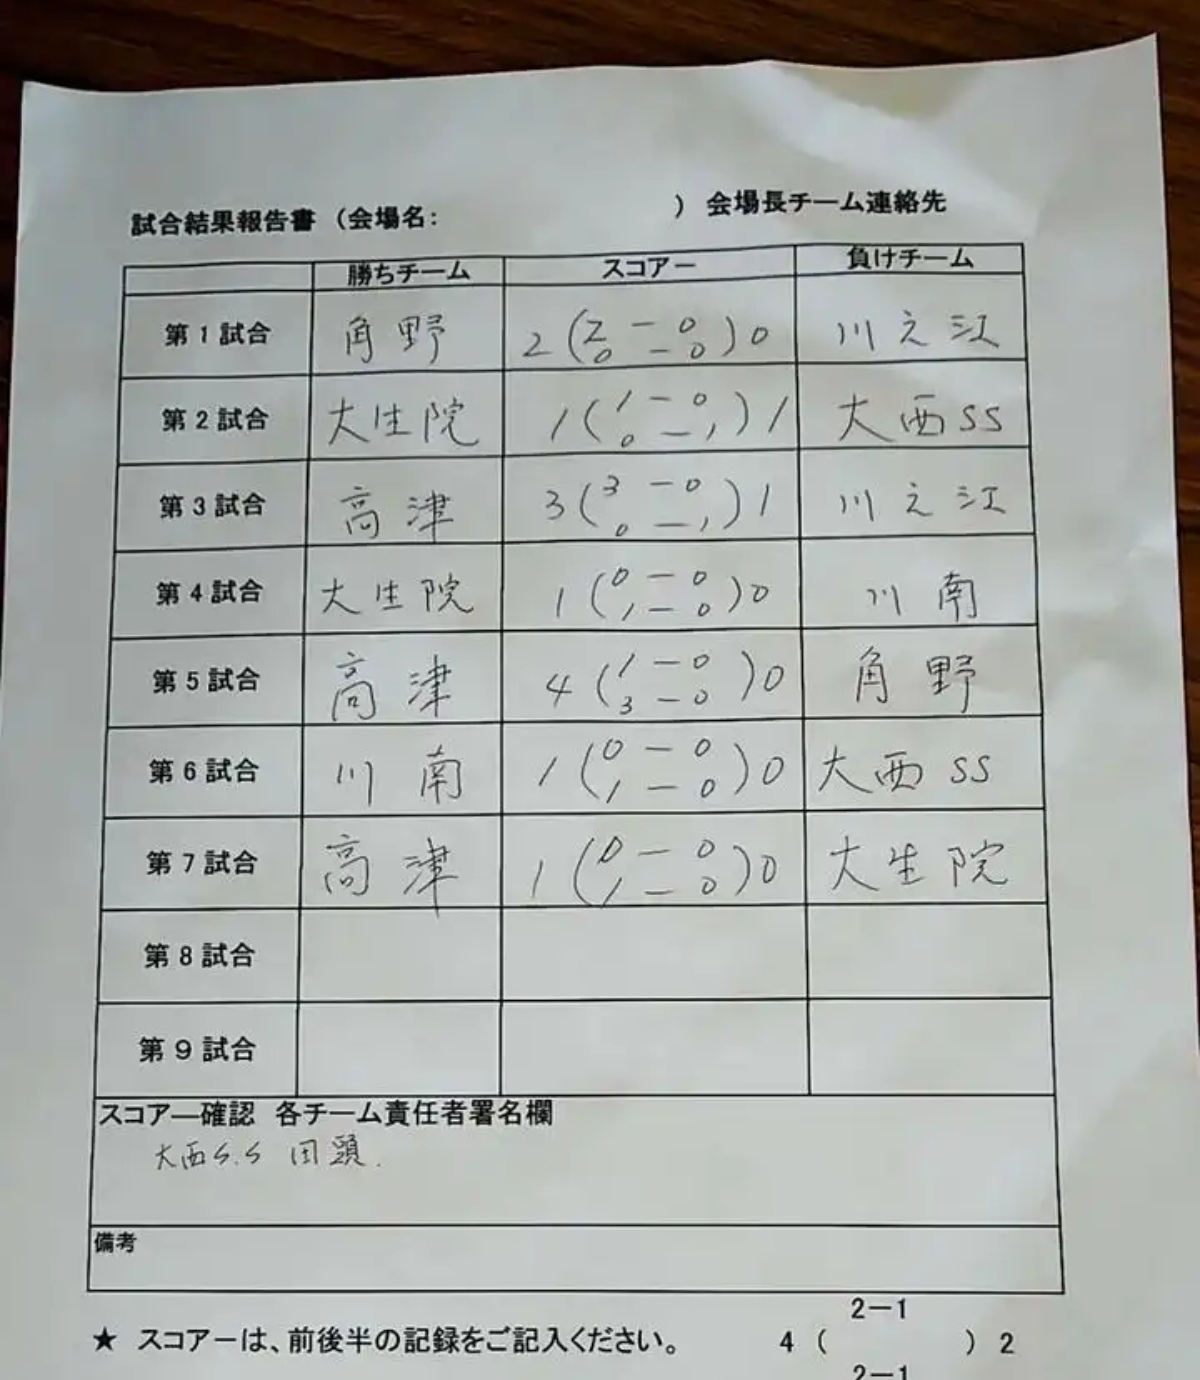 試合結果報告書（会場名：　　　　）会場長チーム連絡先
勝ちチーム　スコアー　負けチーム
第1試合　角野　2（2－0　0－0）0　川之江
第2試合　大生院　1（1－0　0－1）1　大西SS
第3試合　高津　3（3－0　0－1）1　川之江
第4試合　大生院　1（0－0　1－0）0　川南
第5試合　高津　4（1－0　3－0）0　角野
第6試合　川南　1（0－0　1－0）0　大西SS
第7試合　高津　1（0－0　1－0）0　大生院
第8試合
第9試合
スコアー確認　各チーム責任者署名欄
大西S.S
備考
2－1
★　スコアーは、前後半の記録をご記入ください。　4（　　）2
2－1